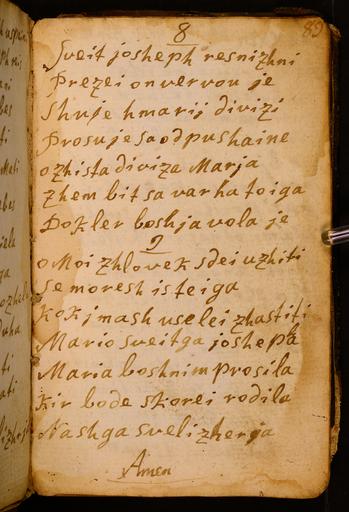 8
89
Sveit josheph resnizhni
Prezei on vervou je
Shuje hmarij divizi
Prosu je sa odpushaine
o zhista diviza Marja
zhem bit sa varha toiga
Dokler boshja vola je
9
o Moi zhlovek sdei uzhiti
se moresh is teiga
kokj mash uselei zhastiti
Mario sveitga joshepha
Maria boshnim prosila
kir bode skorei rodila
Nashga svelizherja
Amen